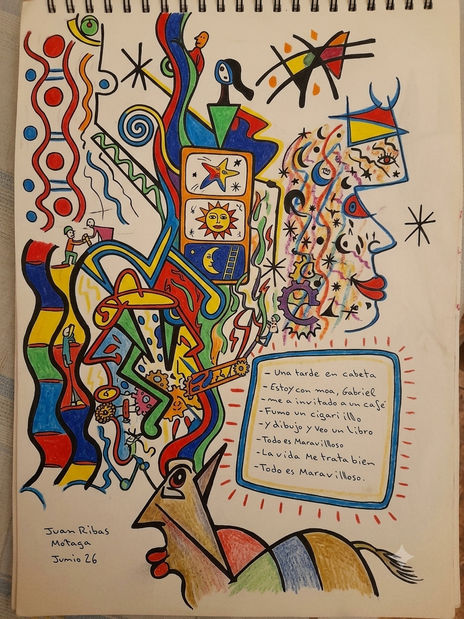 - Una tarde en cabeta
- Estoy con moa, Gabriel
- me a invitado a un café
- Fumo un cigarillllo
- y dibujo y veo un libro
- Todo es Maravillloso
- La vida Me trata bien
- Todo es Maravillloso.
Juan Ribas
Motaga
Jumio 26